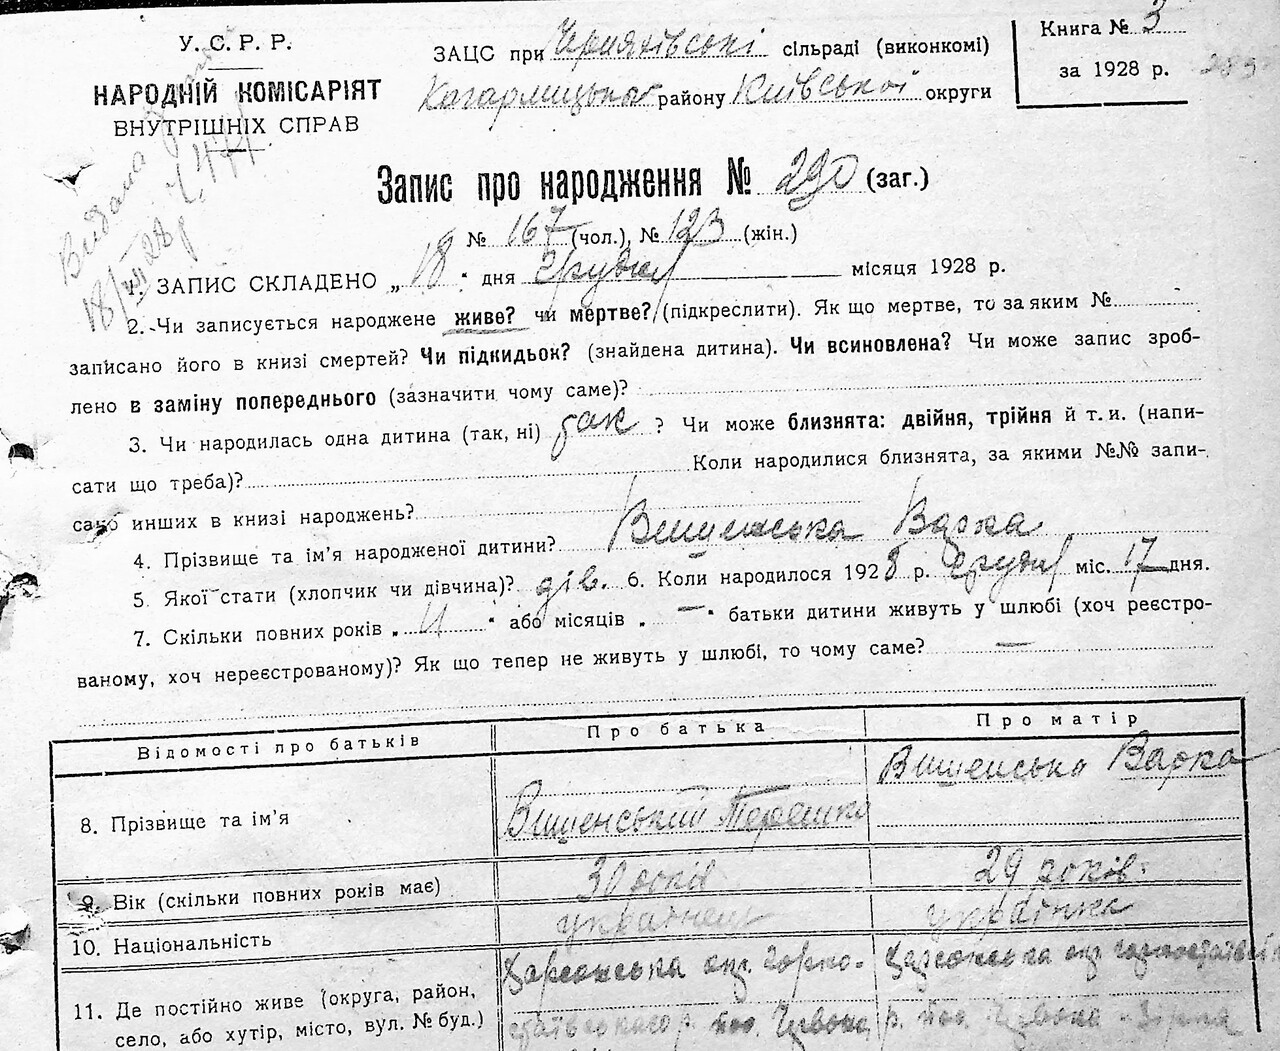 У. С. Р. Р.
НАРОДНІЙ КОМІСАРІЯТ
ВНУТРІШНІХ СПРАВ
ЗАЦС при Черняхівські сільраді (виконкомі)
Кагарлицького району Київської округи
Книга № 3
за 1928 р.
289
Видана
18/XII 28 р.
Запис про народження № 290 (заг.)
№ 167 (чол.), № 123 (жін.)
1. ЗАПИС СКЛАДЕНО „ 18 “ дня Грудня місяця 1928 р.
2. Чи записується народжене живе? чи мертве? (підкреслити). Як що мертве, то за яким №
записано його в книзі смертей? Чи підкидьок? (знайдена дитина). Чи всиновлена? Чи може запис зроб-
лено в заміну попереднього (зазначити чому саме)?
3. Чи народилась одна дитина (так, ні) так ? Чи може близнята: двійня, трійня й т. и. (напи-
сати що треба)? Коли народилися близнята, за якими №№ запи-
сано инших в книзі народжень?
4. Прізвище та ім’я народженої дитини? Вишенська Варка
5. Якої стати (хлопчик чи дівчина)? дів. 6. Коли народилося 1928 р. Грудня міс. 17 дня.
7. Скільки повних років „ 11 “ або місяців „ — “ батьки дитини живуть у шлюбі (хоч реєстро-
ваному, хоч нереєстрованому)? Як що тепер не живуть у шлюбі, то чому саме? —
Відомості про батьків Про батька Про матір
8. Прізвище та ім’я Вишенський Терешко Вишенська Варка
9. Вік (скільки повних років має) 30 років 29 років.
10. Національність українець українка
11. Де постійно живе (округа, район, Херсонська окр. Горно- Херсонська окр. Горностаївськ
село, або хутір, місто, вул. № буд.) стаївського р. пос. Червона р. пос. Червона - Зірка